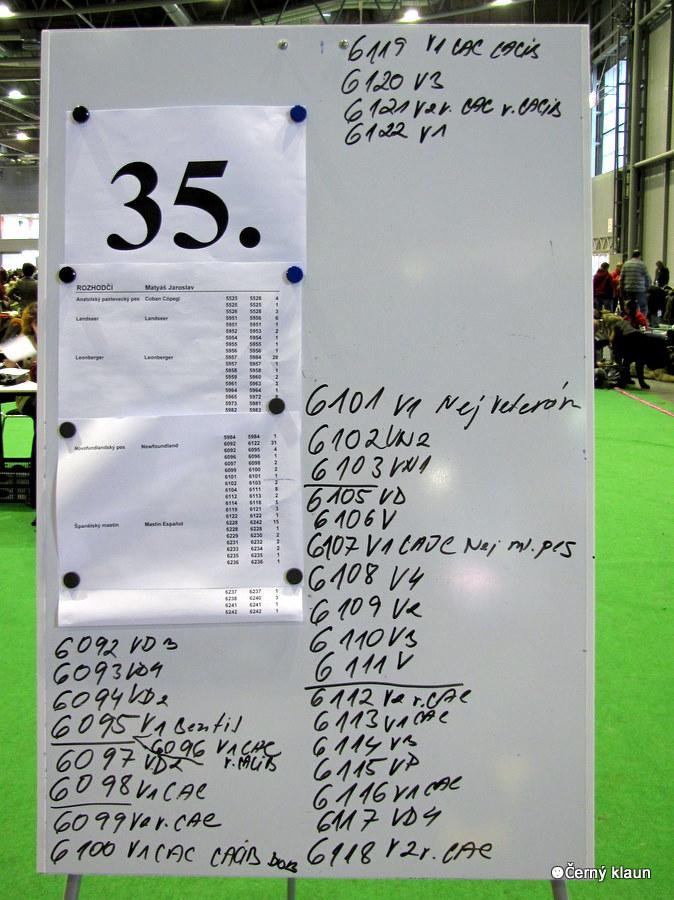 6119 V1 CAC CACIB
6120 V3
6121 V2 r. CAC r. CACIB
6122 V1
35.
ROZHODČÍ Matyáš Jaroslav
Anatolský pastevecký pes Coban Cöpegi 5525 5528 4
5525 5525 1
5526 5528 3
Landseer Landseer 5951 5956 6
5951 5951 1
5952 5953 2
5954 5954 1
5955 5955 1
5956 5956 1
Leonberger Leonberger 5957 5984 28
5957 5957 1
5958 5958 1
5959 5960 2
5961 5963 3
5964 5964 1
5965 5972 8
5973 5981
5982 5983
5984 5984 1
Novofundlandský pes Newfoundland 6092 6122 31
6092 6095 4
6096 6096 1
6097 6098 2
6099 6100 2
6101 6101 1
6102 6103 2
6104 6111 8
6112 6113 2
6114 6118 5
6119 6121 3
6122 6122 1
Španělský mastin Mastin Español 6228 6242 15
6228 6228 1
6229 6230 2
6231 6232 2
6233 6234 2
6235 6235 1
6236 6236 1
6237 6237 1
6238 6240 3
6241 6241 1
6242 6242 1
6092 VD3
6093 VD4
6094 VD2
6095 V1
6096 V1 CAC
r. CACIB
6097 VD2
6098 V1 CAC
6099 V2 r. CAC
6100 V1 CAC CACIB BOB
6101 V1 Nej veterán
6102 VN2
6103 VN1
6105 VD
6106 V
6107 V1 CAJC Nej ml. pes
6108 V4
6109 V2
6110 V3
6111 V
6112 V2 r. CAC
6113 V1 CAC
6114 V3
6115 VD
6116 V1 CAC
6117 VD4
6118 V2 r. CAC
Černý klaun